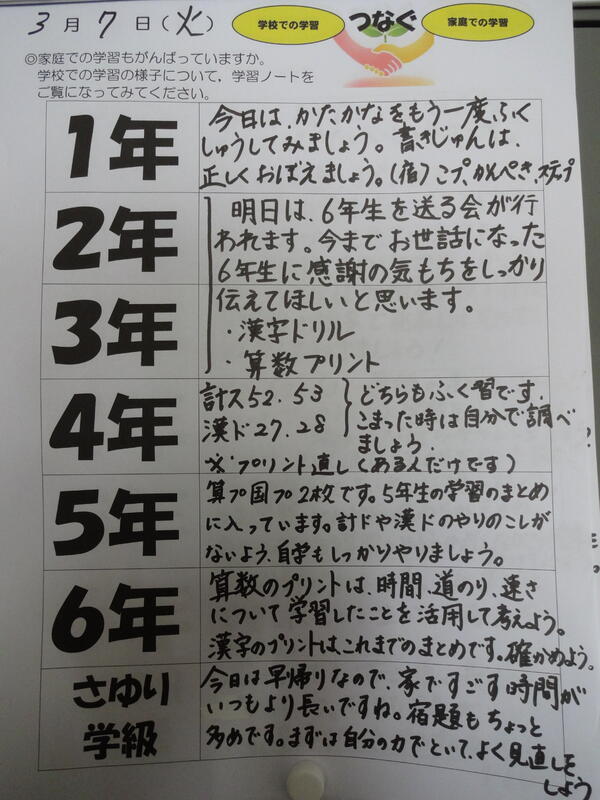 3月7日(火)
学校での学習 つなぐ 家庭での学習
◎家庭での学習もがんばっていますか。
学校での学習の様子について，学習ノートを
ご覧になってみてください。
1年
今日は、かたかなをもう一度ふく
しゅうしてみましょう。書きじゅんは、
正しくおぼえましょう。(宿)こプ、かんぺき、ステップ
2年
3年
明日は、6年生を送る会が行
われます。今までお世話になった
6年生に感謝の気もちをしっかり
伝えてほしいと思います。
・漢字ドリル
・算数プリント
4年
計ス52.53
漢ド27.28
どちらもふく習です。
こまった時は自分で調べ
ましょう。
※プリント直し(ある人だけです)
5年
算プ国プ2枚です。5年生の学習のまとめ
に入っています。計ドや漢ドのやりのこしが
ないよう、自学もしっかりやりましょう。
6年
算数のプリントは、時間、道のり、速さ
について学習したことを活用して考えよう。
漢字のプリントは、これまでのまとめです。確かめよう。
さゆり
学級
今日は早帰りなので、家ですごす時間が
いつもより長いですね。宿題もちょっと
多めです。まずは自分の力でといて、よく見直しを
しよう